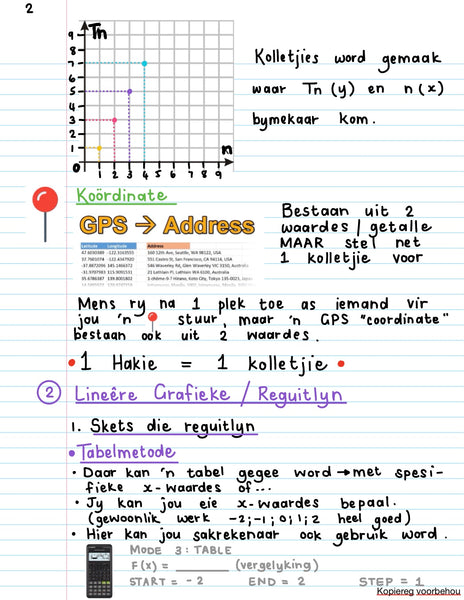 2
Tn
9
8
7
6
5
4
3
2
1
0
1 2 3 4 5 6 7 8 9
n
Kolletjies word gemaak
waar Tn (y) en n (x)
bymekaar kom.
Koördinate
GPS → Address
Latitude Longitude Address
47.6030389 -122.3343555 500 12th Ave, Seattle, WA 98122, USA
37.7601074 -122.4347920 551 Castro St, San Francisco, CA 94114, USA
-37.8872206 145.1406372 586 Waverley Rd, Glen Waverley VIC 3150, Australia
-31.9707983 115.9091531 21 Lathlain Pl, Lathlain WA 6100, Australia
35.6786387 139.8001801
Bestaan uit 2
waardes / getalle
MAAR stel net
1 kolletjie voor
Mens ry na 1 plek toe as iemand vir
jou 'n stuur, maar 'n GPS "coordinate"
bestaan ook uit 2 waardes.
• 1 Hakie = 1 kolletjie •
2 Lineêre Grafieke / Reguitlyn
1. Skets die reguitlyn
• Tabelmetode
• Daar kan 'n tabel gegee word → met spesi-
fieke x-waardes of...
• Jy kan jou eie x-waardes bepaal.
(gewoonlik werk -2;-1;0;1;2 heel goed)
• Hier kan jou sakrekenaar ook gebruik word.
MODE 3: TABLE
F(x) = ______ (vergelyking)
START = -2 END = 2 STEP = 1
Kopiereg voorbehou